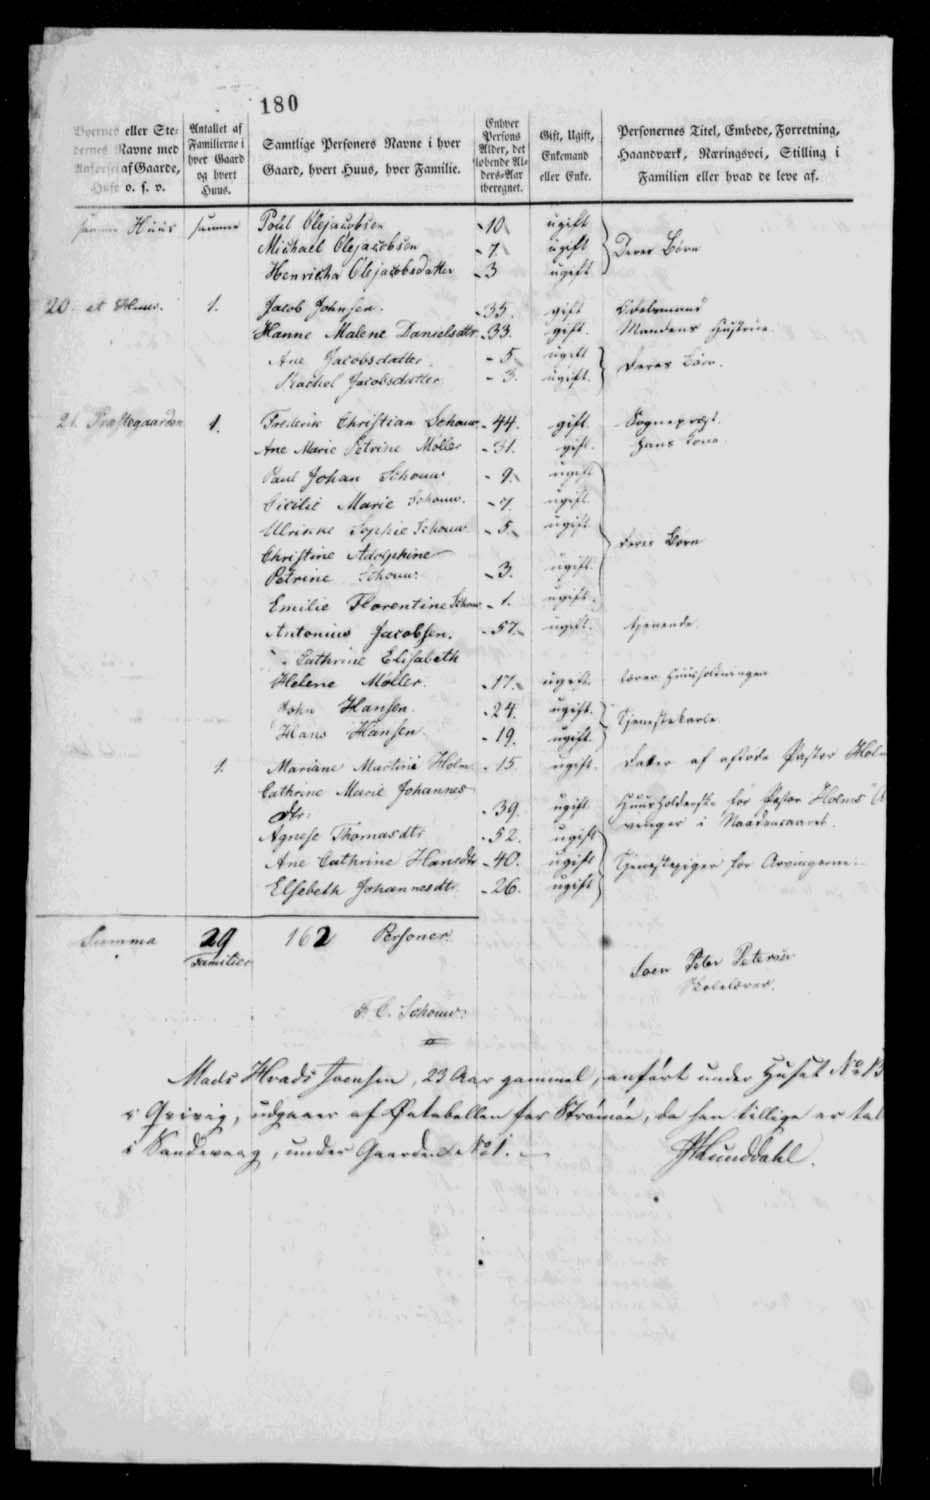 180
Byernes eller Ste-
dernes Navne med
Anførsel af Gaarde,
Huse o. s. v.
Antallet af
Familierne i
hver Gaard
og hvert
Huus.
Samtlige Personers Navne i hver
Gaard, hvert Huus, hver Familie.
Enhver
Persons
Alder, det
løbende Al-
ders-Aar
iberegnet.
Gift, Ugift,
Enkemand
eller Enke.
Personernes Titel, Embede, Forretning,
Haandværk, Næringsvei, Stilling i
Familien eller hvad de leve af.
samme Huus samme Poul Olejacobsen 10 ugift
Michael Olejacobsen 7 ugift Deres Børn
Henricha Olejacobsdatter 3 ugift
20. et Huus. 1. Jacob Johnsen. 35. gift
Hanne Malene Danielsdtr. 33. gift. Mandens Hustrue
Ane Jacobsdatter 5 ugift Deres Børn.
Rachel Jacobsdatter 3. ugift.
21. Præstegaarden 1. Frederik Christian Schouw 44. gift. Sognepræst.
Ane Marie Petrine Møller 31. gift. hans Kone.
Paul Johan Schouw 9. ugift
Cicilie Marie Schouw. 7. ugift
Ulrikke Sophie Schouw 5. ugift
Christine Adolphine
Petrine Schouw. 3. ugift. deres Børn
Emilie Florentine Schouw 1. ugift.
Antonius Jacobsen. 57. ugift. tjenende.
Cathrine Elisabeth
Helene Møller. 17. ugift. lærer Huusholdningen
John Hansen. 24. ugift. Tjenestekarle
Hans Hansen 19. ugift.
1. Mariane Martine Holm. 15 ugift. Datter af afdøde Pastor Holm
Cathrine Marie Johannes-
dtr. 39. ugift Huusholderske for Pastor Holms A
Agnese Thomasdtr 52. ugift vinger i Naadensaaret.
Ane Cathrine Hansdtr 40. ugift Tjenestepiger for Arvingerne.
Elsebeth Johannesdtr. 26. ugift
Summa 29 162 Personer
Familier
Joen Peter Petersen
Skolelærer.
F. C. Schouw.
Mads Hvads Joensen, 23 Aar gammel, anført under Huset No. 13
i Qvivig, udgaaer af Databellen for Strømøe, da han tillige er tal
i Sandevaag, under Gaarden No. 1.
HLunddahl.